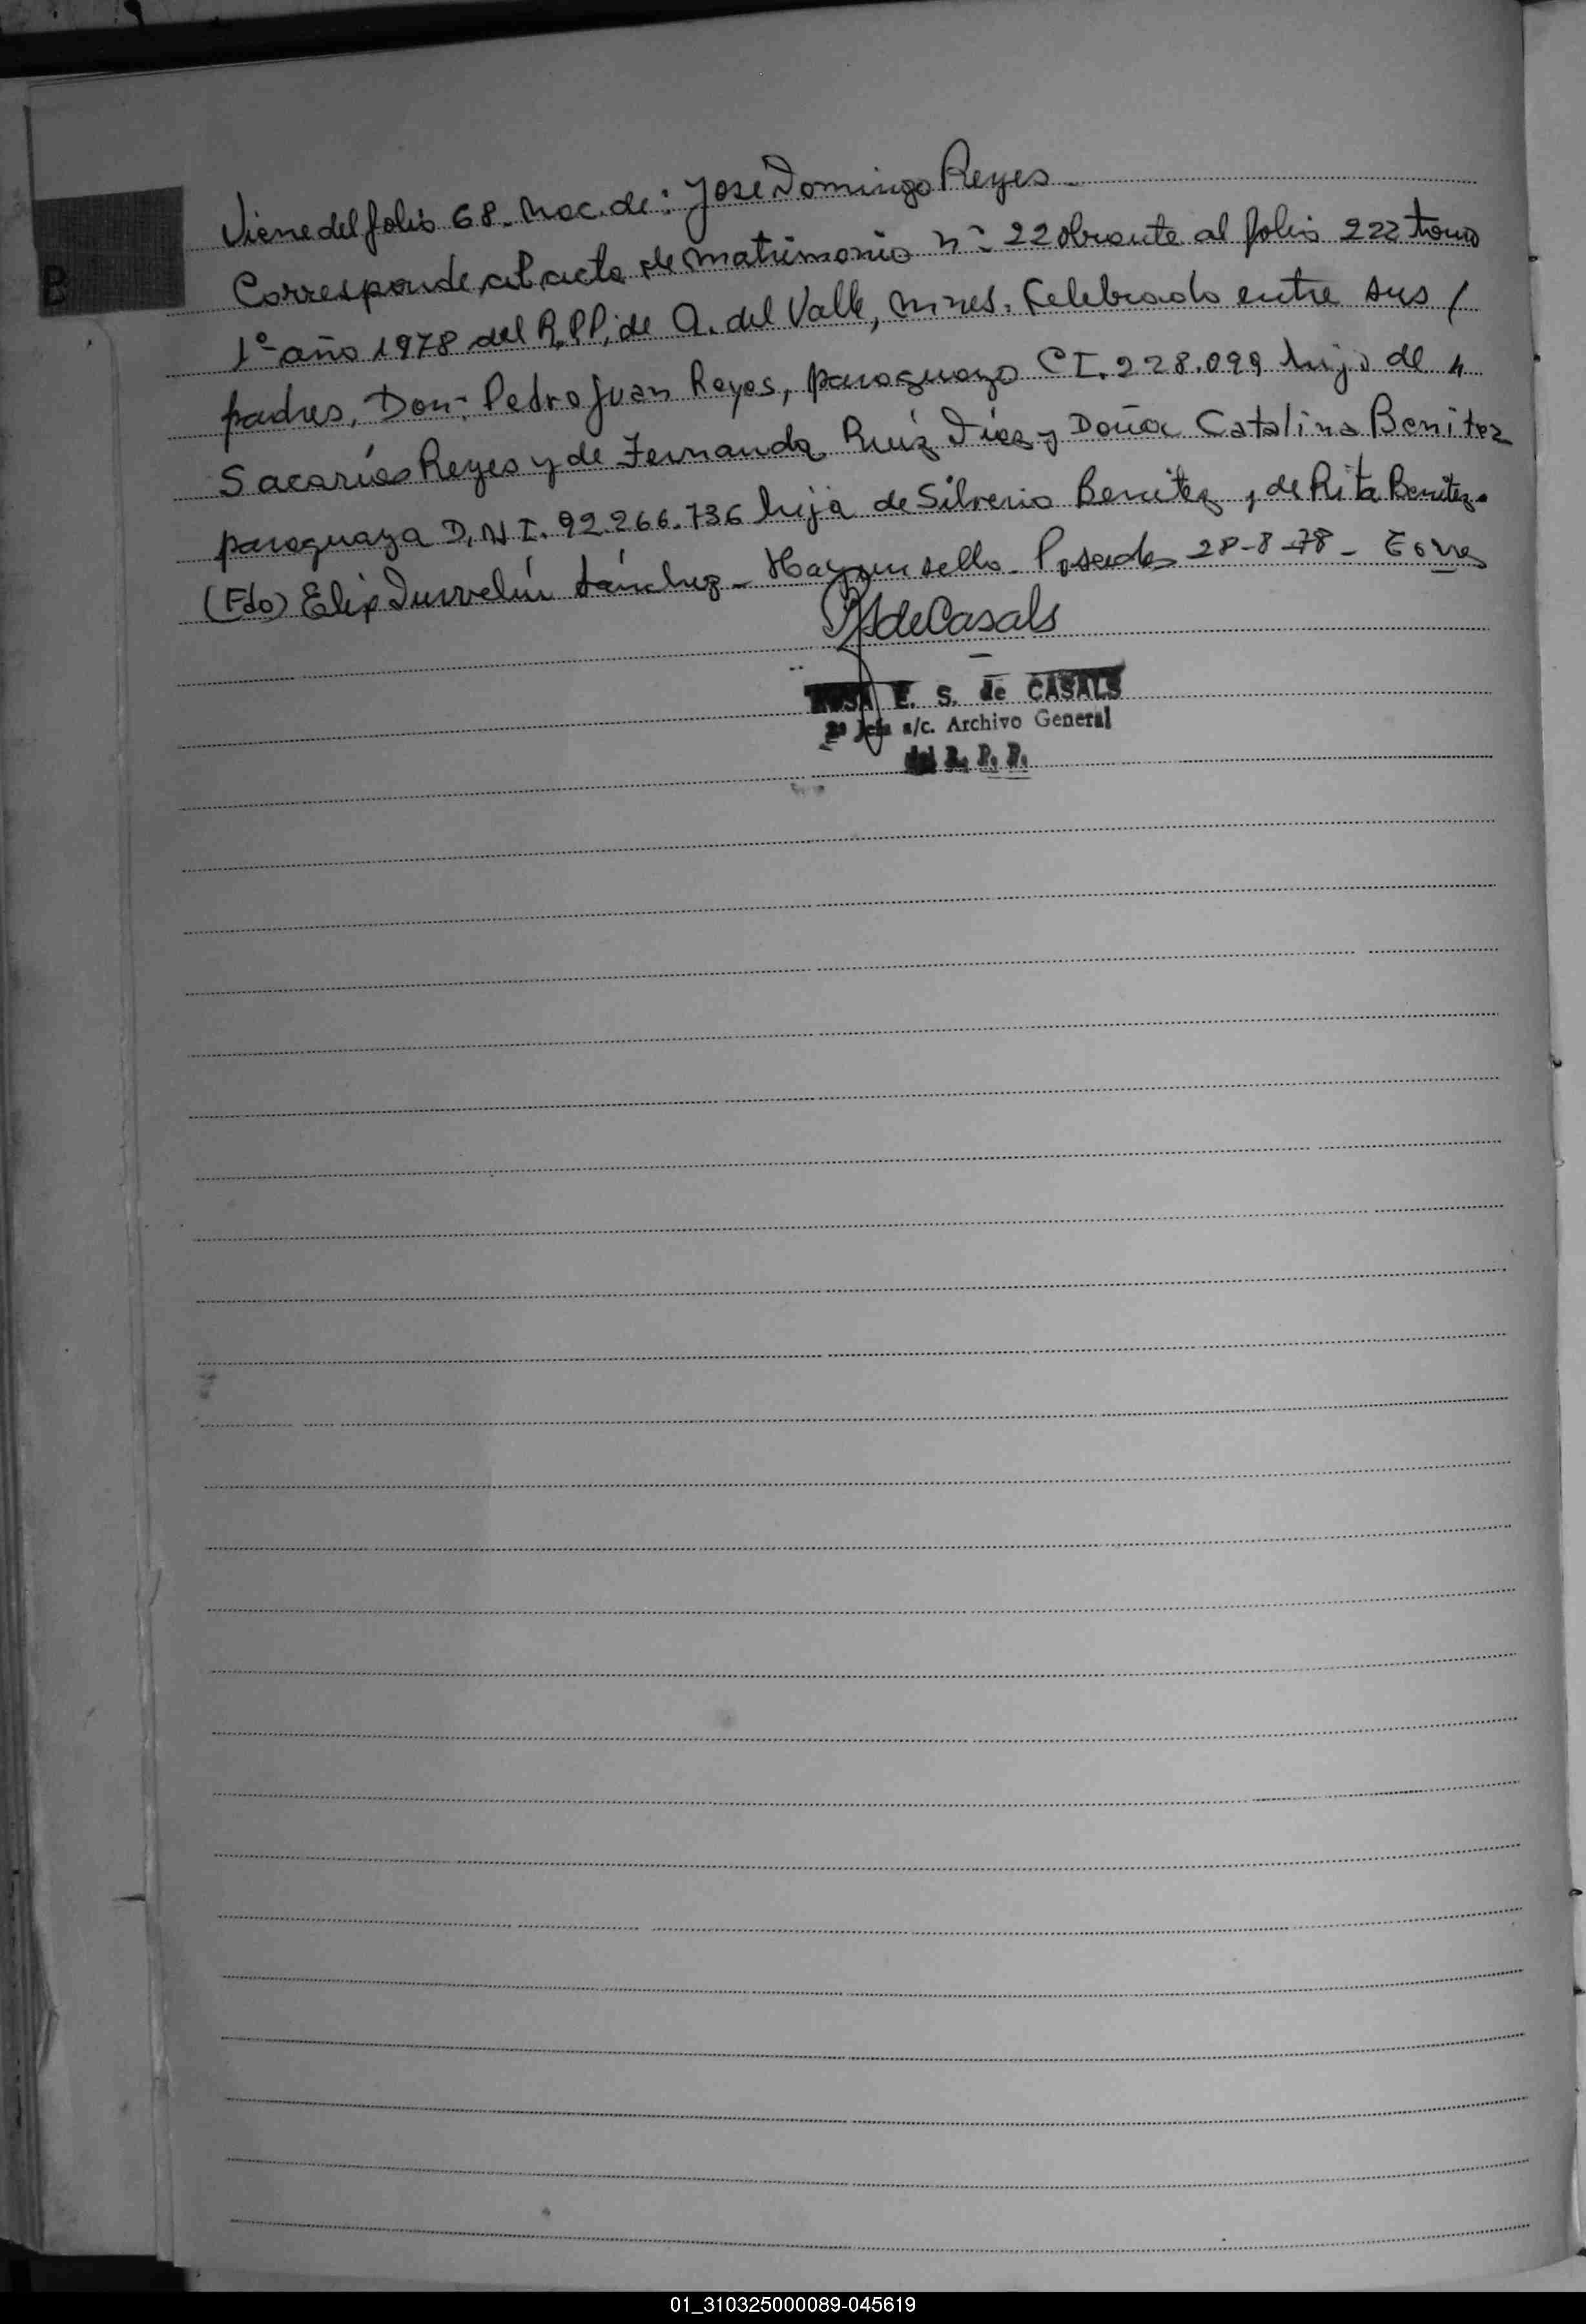 Viene del folio 68. Nac. de: José Domingo Reyes
Corresponde al acta de matrimonio nº 22 obrante al folio 222 tomo
1º año 1978 del R.P.P. de A. del Valle, Mnes. Celebrado entre sus /
padres, Don: Pedro Juan Reyes, paraguayo C I. 228.099 hijo de
Sacarías Reyes y de Fernanda Ruíz Díaz y Doña Catalina Benitez
paraguaya D.N I. 92.266.736 hija de Silverio Benitez y de Rita Benitez.
(Fdo) Sánchez - Hay un sello. Posadas 28-8-78 -
B
de Casals
ROSA E. S. de CASALS
2ª Jefa a/c. Archivo General
del R. P. P.
01_310325000089-045619